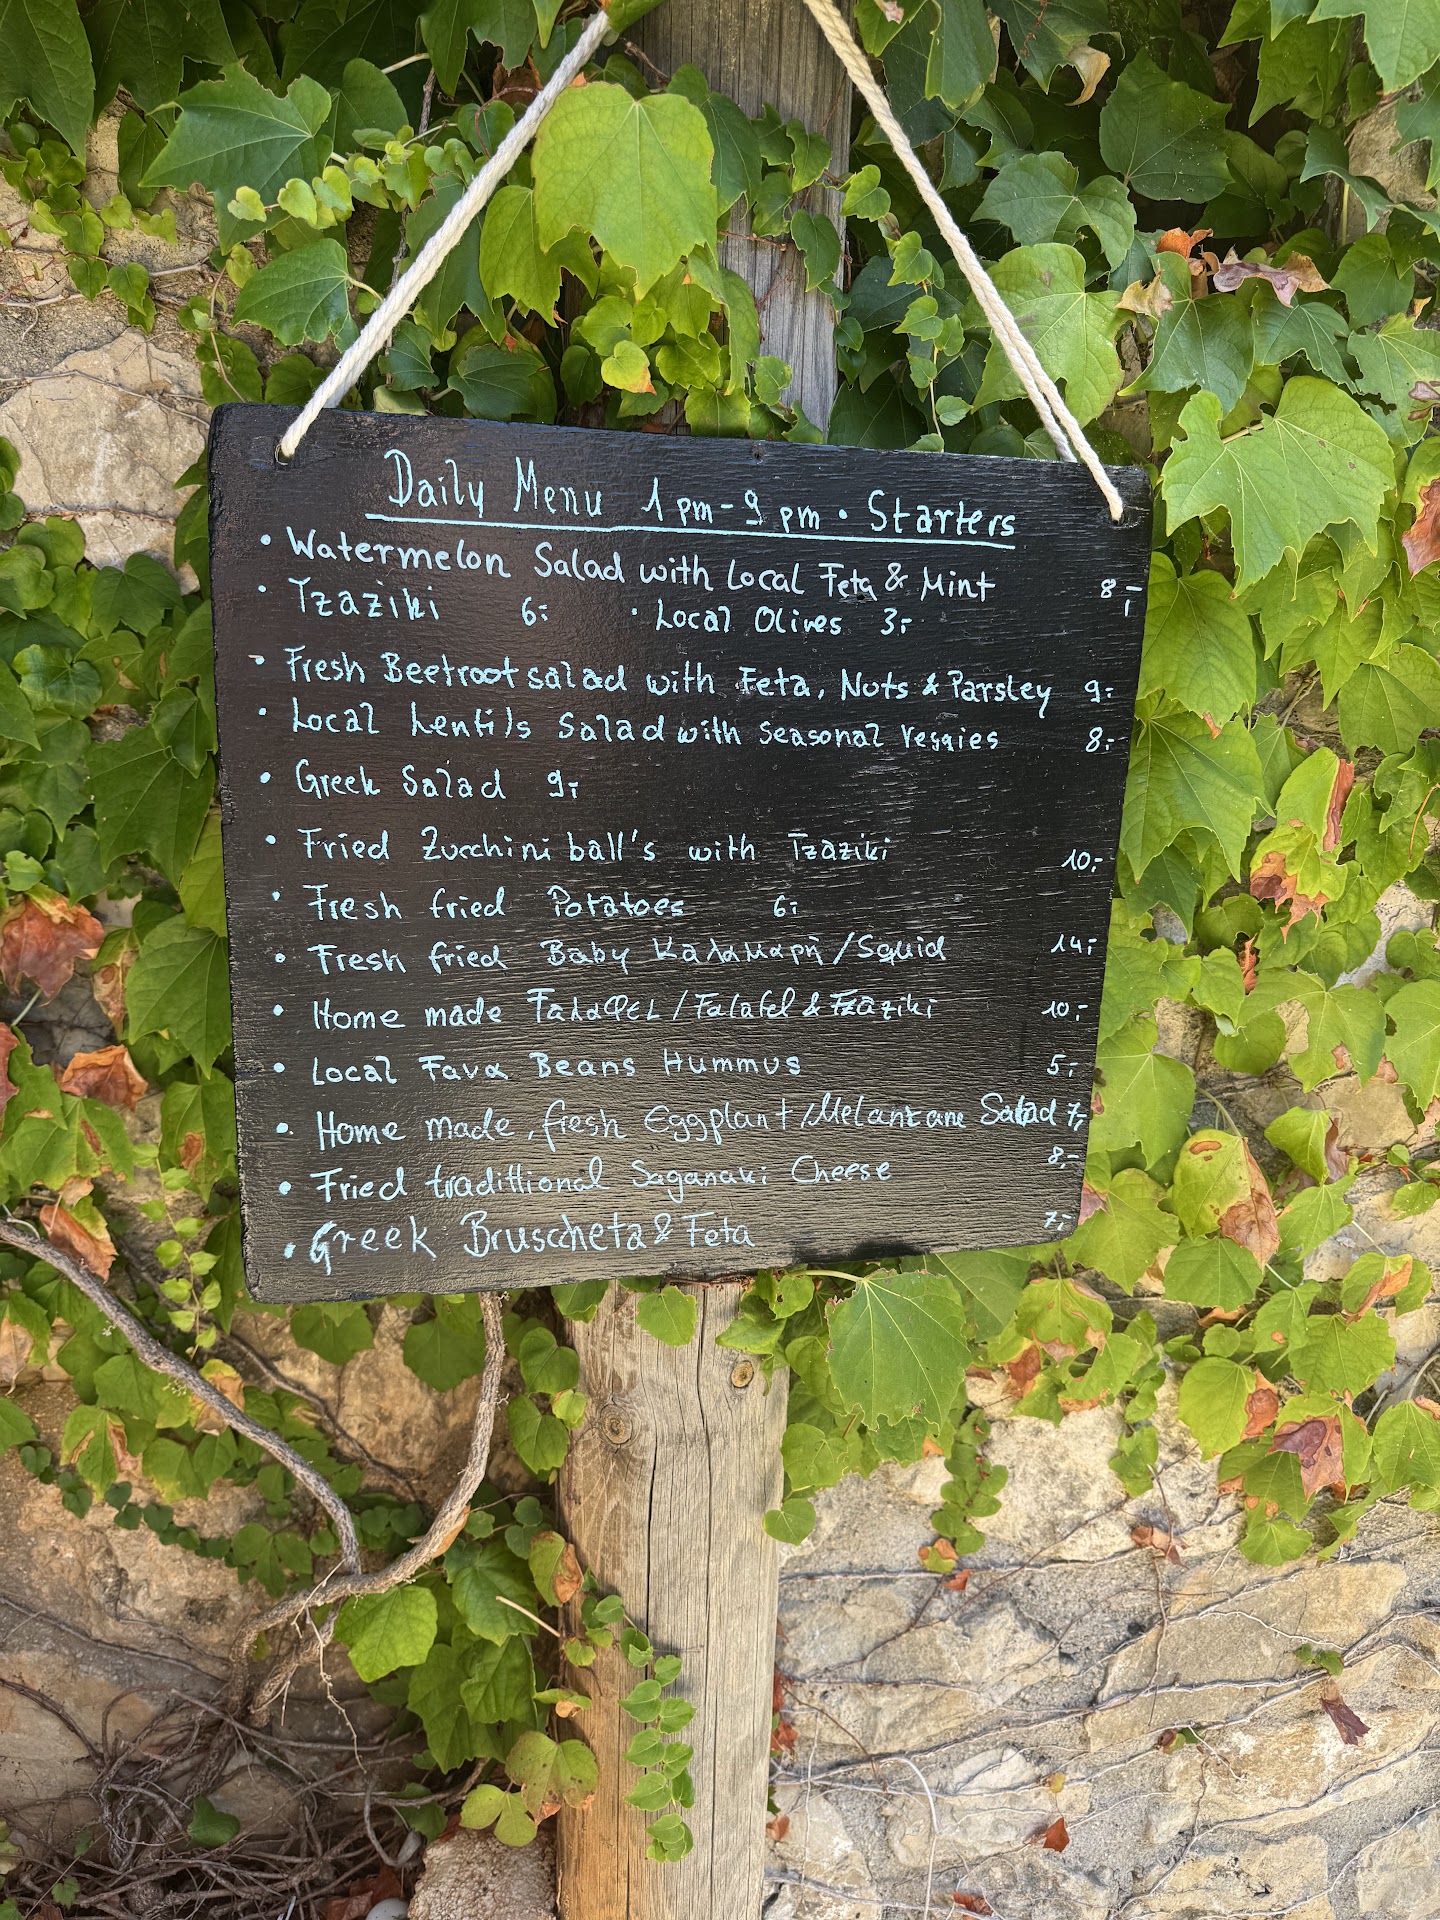 Daily Menu 1pm-9pm • Starters
• Watermelon Salad with Local Feta & Mint 8,-
• Tzaziki 6,- • Local Olives 3,-
• Fresh Beetroot salad with Feta, Nuts & Parsley 9,-
• Local Lentils Salad with seasonal veggies 8,-
• Greek Salad 9,-
• Fried Zucchini ball's with Tzaziki 10,-
• Fresh fried Potatoes 6,-
• Fresh fried Baby Καλαμαρη / Squid 14,-
• Home made Γαλαφελ / Falafel & Tzaziki 10,-
• Local Fava Beans Hummus 5,-
• Home made, fresh Eggplant/Melanzane Salad 7,-
• Fried tradittional Saganaki Cheese 8,-
• Greek Bruscheta & Feta 7,-